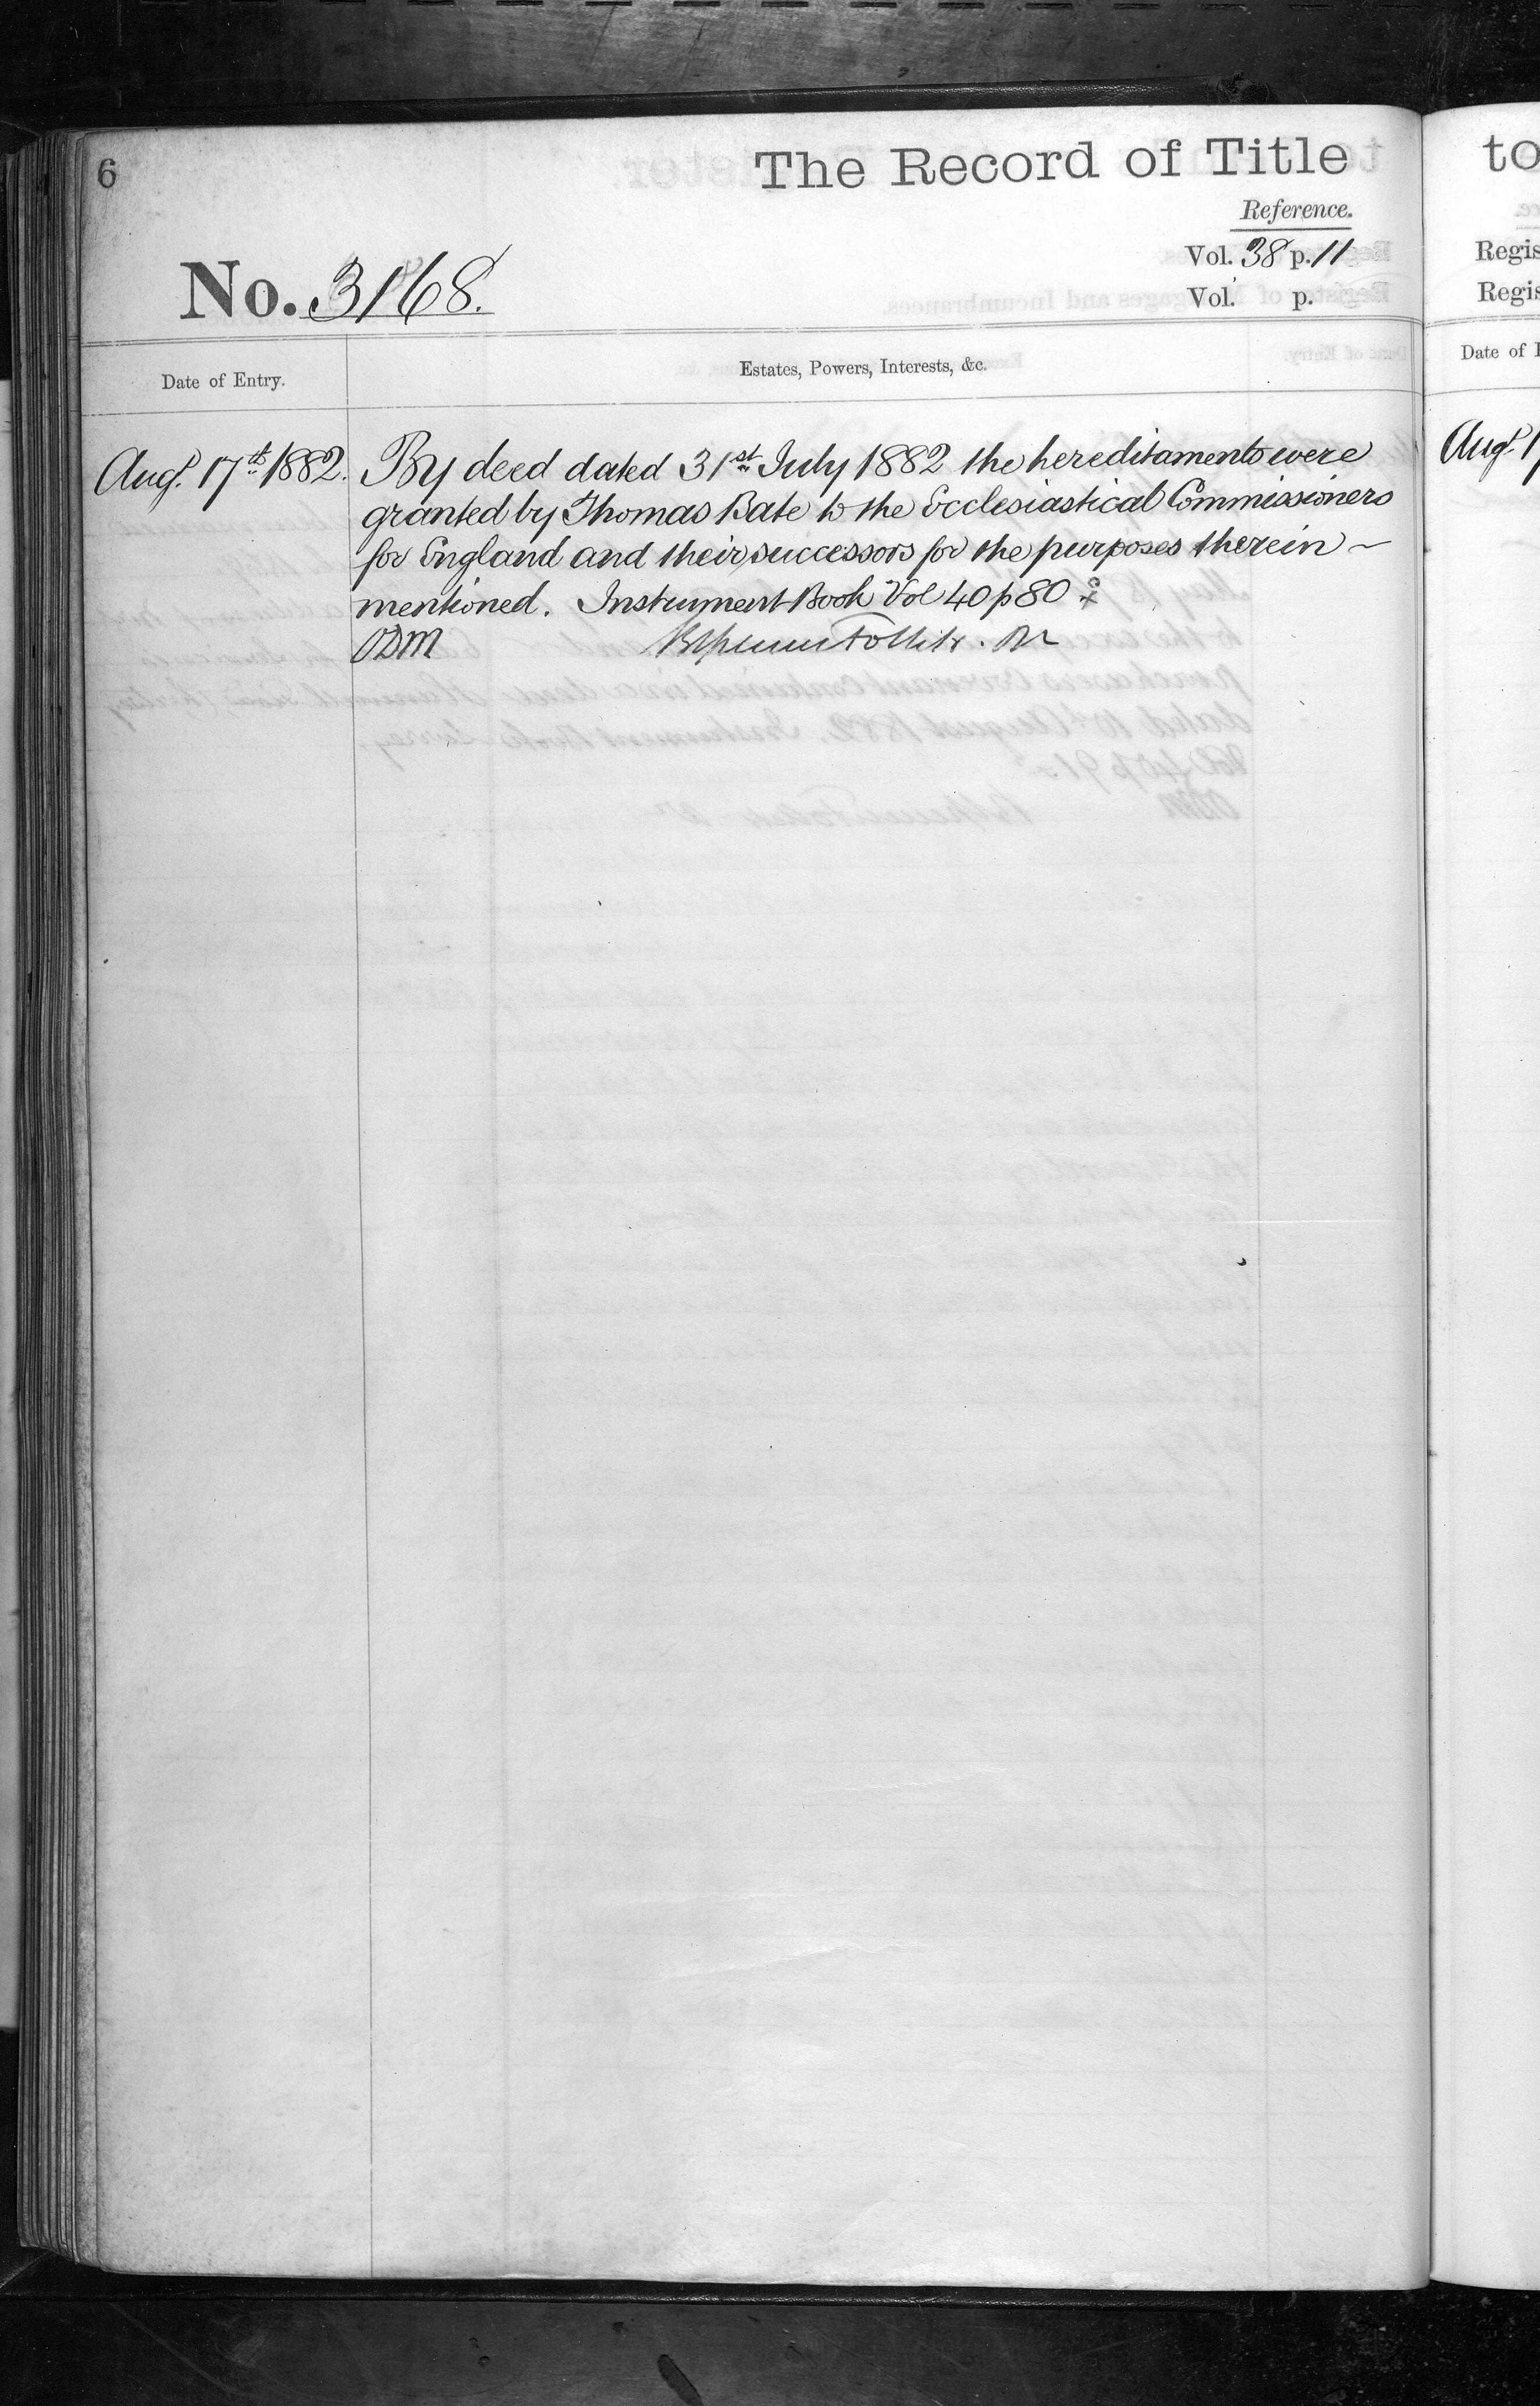 6
The Record of Title
Reference.
Vol. 38 p. 11
Vol. p.
No. 3168.
Date of Entry.
Estates, Powers, Interests, &c.
Aug. 17th 1882.
By deed dated 31st July 1882 the hereditaments were
granted by Thomas Bate to the Ecclesiastical Commissioners
for England and their successors for the purposes therein ~
mentioned. Instrument Book Vol 40 p 80
ODM
to
Regis
Regis
Date of
Aug. 1